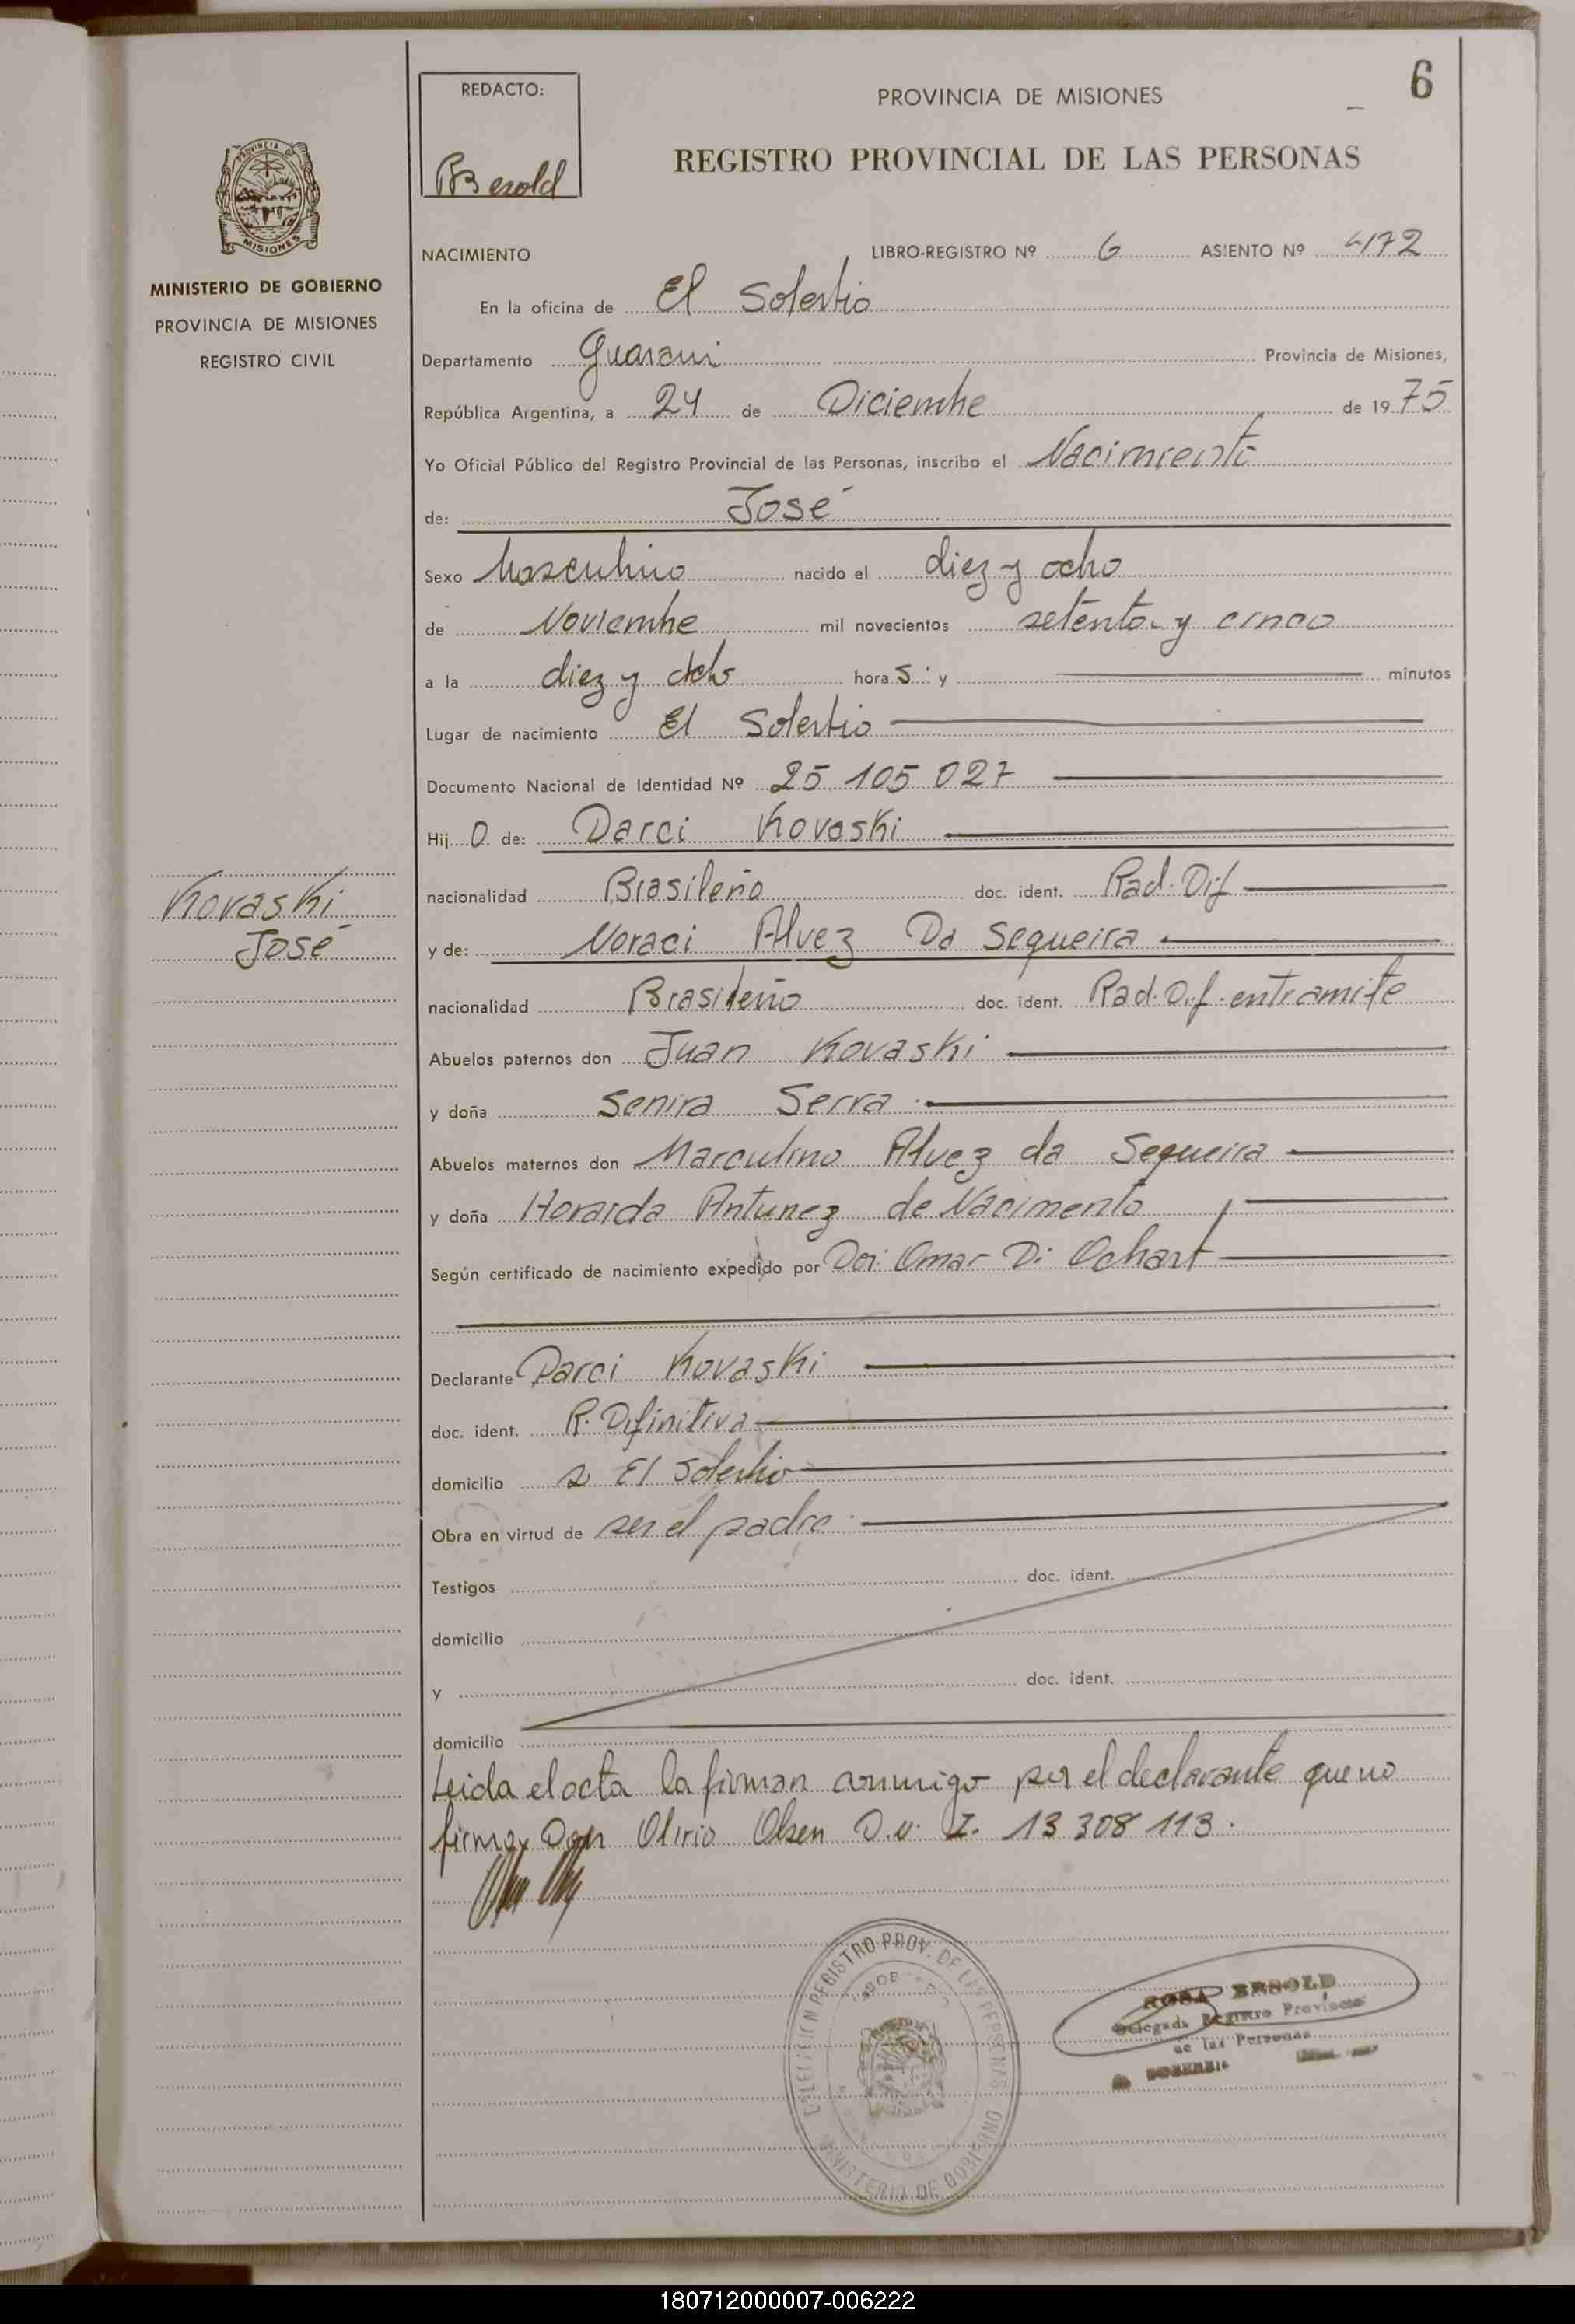 6
REDACTO:
PROVINCIA DE MISIONES
REGISTRO PROVINCIAL DE LAS PERSONAS
PROVINCIA DE
MISIONES
MINISTERIO DE GOBIERNO
PROVINCIA DE MISIONES
REGISTRO CIVIL
NACIMIENTO LIBRO-REGISTRO Nº 6 ASIENTO Nº 4172
En la oficina de El Soberbio
Departamento Guarani Provincia de Misiones,
República Argentina, a 24 de Diciembre de 1975
Yo Oficial Público del Registro Provincial de las Personas, inscribo el Nacimiento
de: José
Sexo Masculino nacido el diez y ocho
de Noviembre mil novecientos setenta y cinco
a la diez y ocho horas y minutos
Lugar de nacimiento El Soberbio
Documento Nacional de Identidad Nº 25.105.027
Hijo de: Darci Kovaski
nacionalidad Brasileño doc. ident. Rad. Dif
Kovaski
José
y de: Noraci Alvez Da Sequeira
nacionalidad Brasileño doc. ident. Rad. Dif. entramite
Abuelos paternos don Juan Kovaski
y doña Senira Serra
Abuelos maternos don Marculino Alvez da Sequeira
y doña Horaida Antunez de Nacimento
Según certificado de nacimiento expedido por Omar Di Ochart
Declarante Darci Kovaski
doc. ident. R. Difinitiva
domicilio El Soberbio
Obra en virtud de ser el padre
Testigos doc. ident.
domicilio
y doc. ident.
domicilio
Leida el acta la firman conmigo por el declarante que no
firma, Don Olirio Olsen D.N.I. 13 308 113.
REGISTRO PROV. DE LAS PERSONAS
MINISTERIO DE GOBIERNO
ROSA BESOLD
Delegada Registro Provincial
de las Personas
180712000007-006222